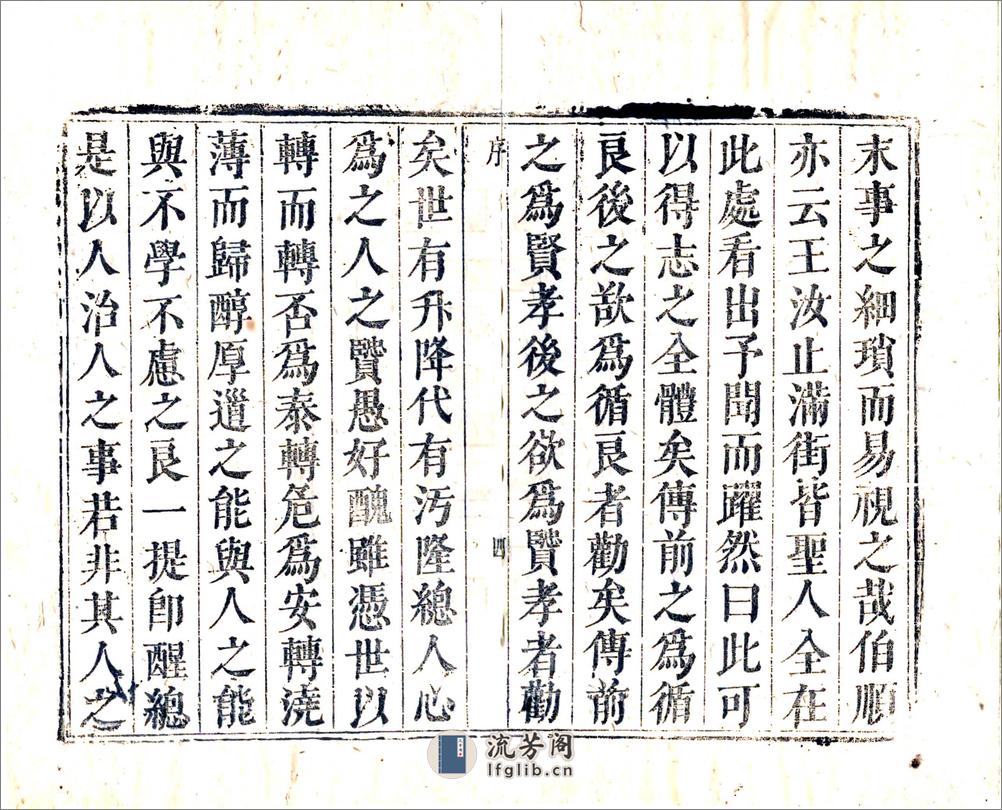 末事之細瑣而易視之哉伯順
亦云王汝止滿街皆聖人全在
此處看出予聞而躍然曰此可
以得志之全體矣傳前之爲循
良後之欲爲循良者勸矣傳前
之爲賢孝後之欲爲賢孝者勸
序 四
矣世有升降代有汚隆總人心
爲之人之賢愚好醜雖憑世以
轉而轉否爲泰轉危爲安轉澆
薄而歸醇厚道之能與人之能
與不學不慮之良一提卽醒總
是以人治人之事若非其人之
流芳阁
lfglib.cn